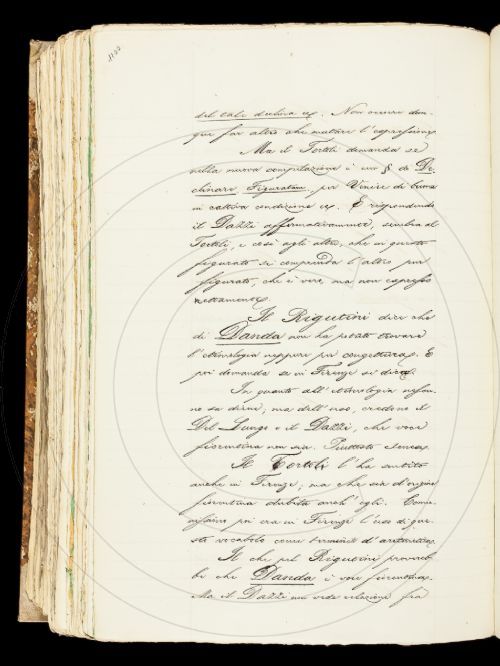 del tale declina ec. Non occorre dun-
que far altro che mutare l'espressione.
Ma il Tortoli domanda se
nella nuova compilazione è un § di De-
clinare Figuratam. per Venire di buona
in cattiva condizione ec. E rispondendo
il Dazzi affermativamente, sembra al
Tortoli, e così agli altri, che in questo
figurato si comprenda l'altro pur
figurato, che è vero, ma non espresso
nettamente.
Il Rigutini dice che
di Danda non ha potuto trovare
l'etimologia neppure per congettura. E
poi domanda se in Firenze si dica.
In quanto all'etimologia nessu-
no sa dirne, ma dell'uso, credono il
Del-Lungo e il Dazzi, che voce
fiorentina non sia. Piuttosto
Il Tortoli l'ha sentito
anche in Firenze; ma che sia d'origine
fiorentina dubita anch'egli.
poi era in Firenze l'uso di que-
sto vocabolo come termine d'aritmetica.
Il che pel Rigutini proverreb-
be che Danda è voce fiorentina.
Ma il Dazzi non vede relazione fra